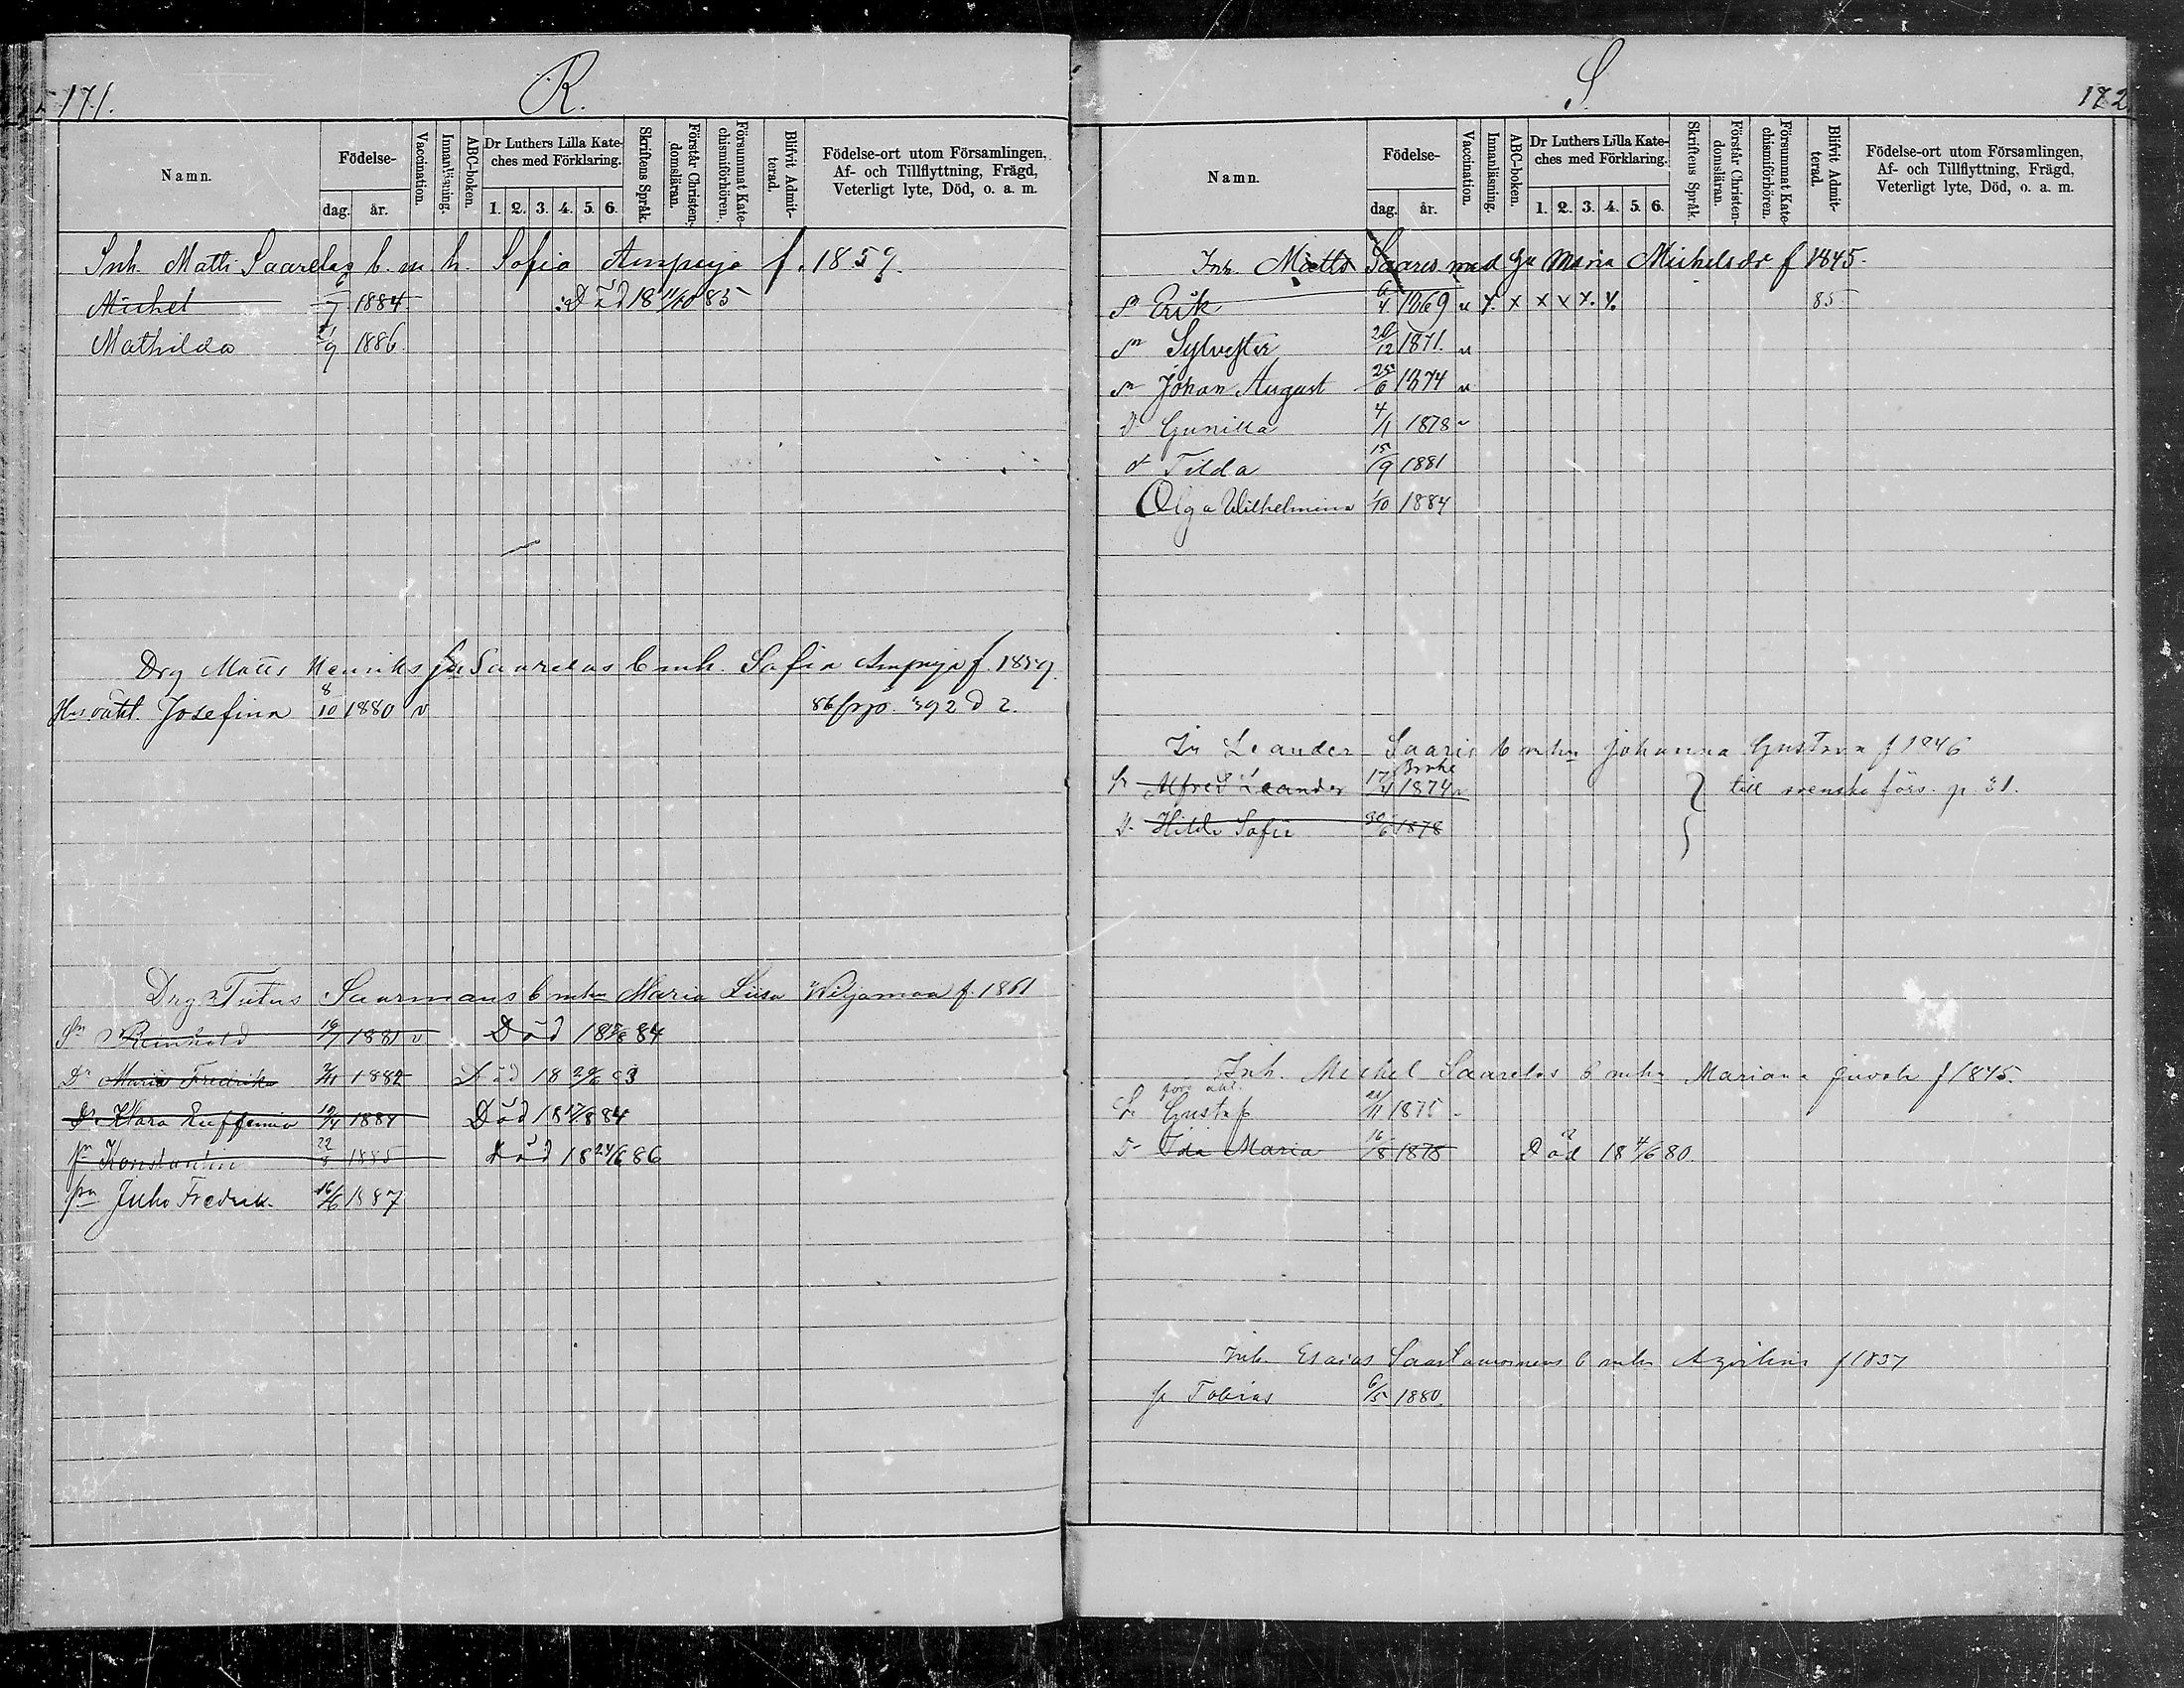 171.
R.
Namn.
Födelse-
dag. år.
Vaccination.
Innanläsning.
ABC-boken.
Dr Luthers Lilla Kate-
ches med Förklaring.
1. 2. 3. 4. 5. 6.
Skriftens Språk.
Förstår Christen-
domsläran.
Försummat Kate-
chismiförhören.
Blifvit Admit-
terad.
Födelse-ort utom Församlingen,
Af- och Tillflyttning, Frägd,
Veterligt lyte, Död, o. a. m.
Inh. Matts Saarelas b. m h. Sofia Ampuja f. 1859.
Michel 6/7 1884 Död 18 11/10 85
Mathilda 21/9 1886.
Drg Matts Henriks Saarelas b mh. Sofia Ampuja f. 1859.
Josefina 8/10 1880 v 86 392 d 2.
Drg Titus Saarmans b mhu Maria Liisa Wiljamaa f. 1861
Sn Reinhold 19/7 1881 v Död 84
Dr Maria Fredrika 1882 Död 18 83
Dr Klara Euffemia 1884 Död 18 17/8 84
sn Konstantin 22/8 1885 Död 18 24/6 86
sn Juho Fredrik 16/6 1887
S.
172
Namn.
Födelse-
dag. år.
Vaccination.
Innanläsning.
ABC-boken.
Dr Luthers Lilla Kate-
ches med Förklaring.
1. 2. 3. 4. 5. 6.
Skriftens Språk.
Förstår Christen-
domsläran.
Försummat Kate-
chismiförhören.
Blifvit Admit-
terad.
Födelse-ort utom Församlingen,
Af- och Tillflyttning, Frägd,
Veterligt lyte, Död, o. a. m.
Inh. Matts Saaris med hu Maria Michelsdr f 1845.
Sn Erik 6/4 1869 v x x x x x x 85
Sn Sylvester 20/12 1871. v
Sn Johan August 25/6 1874 v
D Gunilla 4/1 1878 v
d Tilda 15/9 1881
Olga Wilhelmina 1/10 1884
In Leander Saaris b mhu Johanna Gustava f 1846
S Alfred Leander 17/4 1874 v till svenska förs. p. 31.
D Hilda Sofia 30/6 1878
Inh. Michel Saarelas b mhu Mariana Juvoh f 1845.
S Gustaf 21/11 1875
D Ida Maria 16/8 1878 Död 18 4/6 80.
Inh. Esaias Saastamoinens b mhu f 1857
s Tobias 6/5 1880.